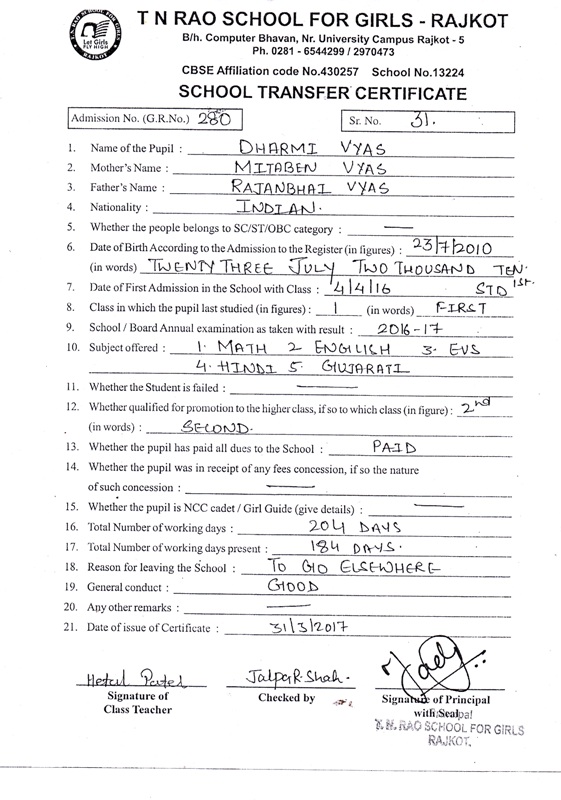 T N RAO SCHOOL FOR GIRLS - RAJKOT
B/h. Computer Bhavan, Nr. University Campus Rajkot - 5
Ph. 0281 - 6544299 / 2970473
CBSE Affiliation code No.430257 School No.13224
SCHOOL TRANSFER CERTIFICATE
T N RAO SCHOOL FOR GIRLS
Let Girls
FLY HIGH
RAJKOT
Admission No. (G.R.No.) 280 Sr. No. 31.
1. Name of the Pupil : DHARMI VYAS
2. Mother's Name : MITABEN VYAS
3. Father's Name : RAJANBHAI VYAS
4. Nationality : INDIAN.
5. Whether the people belongs to SC/ST/OBC category : —
6. Date of Birth According to the Admission to the Register (in figures) : 23/7/2010
(in words) TWENTY THREE JULY TWO THOUSAND TEN.
7. Date of First Admission in the School with Class : 4/4/16 STD 1st.
8. Class in which the pupil last studied (in figures) : 1 (in words) FIRST
9. School / Board Annual examination as taken with result : 2016-17
10. Subject offered : 1. MATH 2 ENGILICH 3. EVS
4. HINDI 5. GUJARATI
11. Whether the Student is failed : —
12. Whether qualified for promotion to the higher class, if so to which class (in figure) : 2nd
(in words) : SECOND.
13. Whether the pupil has paid all dues to the School : PAID
14. Whether the pupil was in receipt of any fees concession, if so the nature
of such concession : —
15. Whether the pupil is NCC cadet / Girl Guide (give details) : —
16. Total Number of working days : 204 DAYS
17. Total Number of working days present : 184 DAYS.
18. Reason for leaving the School : TO GO ELSEWHERE
19. General conduct : GOOD
20. Any other remarks : —
21. Date of issue of Certificate : 31/3/2017
Hetal Patel Jalpa R. Shah.
Signature of Checked by Signature of Principal
Class Teacher with Seal
Principal
T. N. RAO SCHOOL FOR GIRLS
RAJKOT.